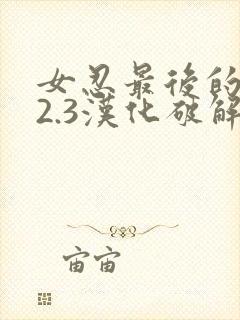 女忍最後的
2.3漢化破解
宙宙